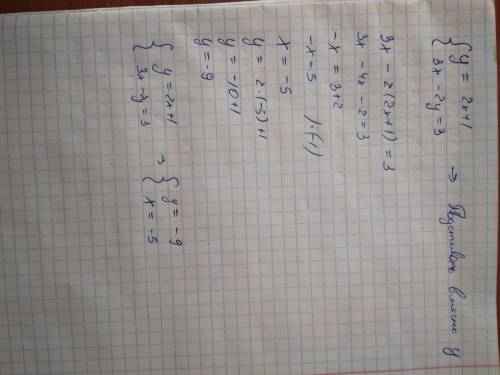 { y = 2x+1
{ 3x - 2y = 3 → Подставить вместо y
3x - 2(2x+1) = 3
3x - 4x - 2 = 3
-x = 3+2
-x = 5 ) ·(-1)
x = -5
y = 2·(-5)+1
y = -10+1
y = -9
{ y = 2x+1 → { y = -9
{ 3x - 2y = 3 { x = -5